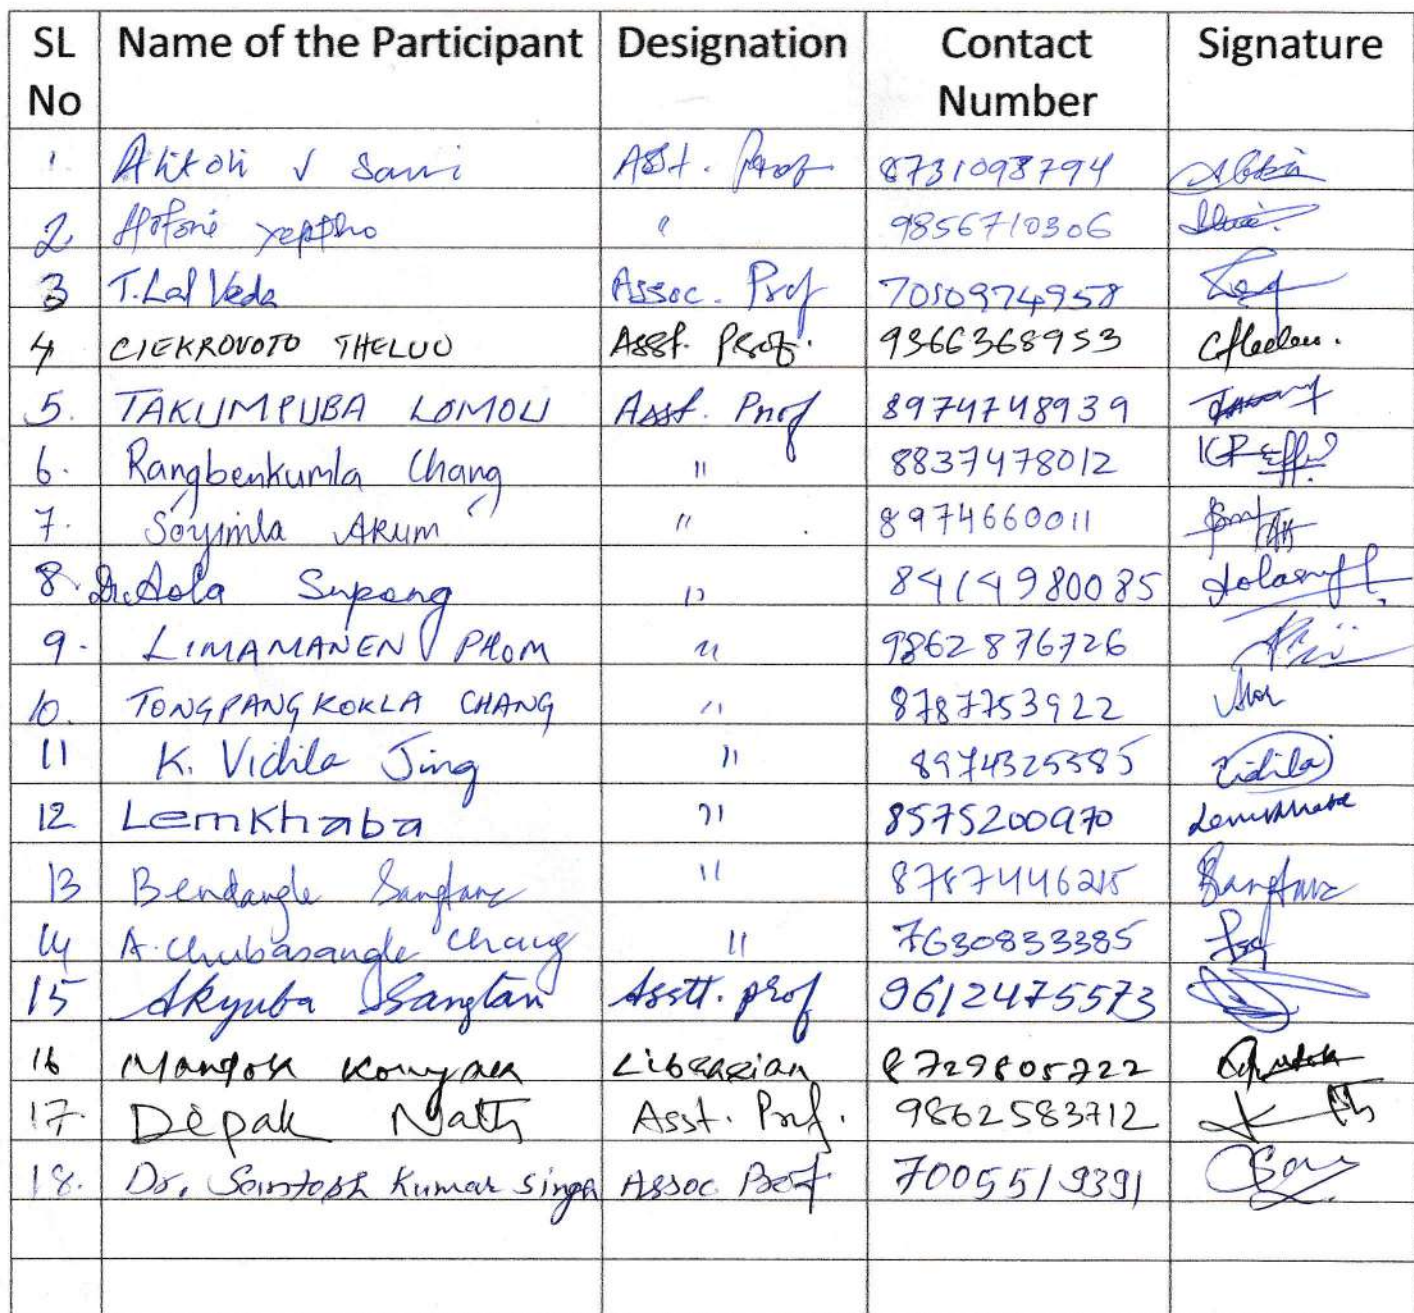 SL No Name of the Participant Designation Contact Number Signature
1. Alikoli V Sawi Asst. Prof 8731098794
2 Hotoni Yeptho " 9856710306
3 T. Lal Veda Assoc. Prof 7010974958
4 CIEKROVOTO THELUO Asst. Prof. 9366368953
5. TAKUMPUBA LOMOU Asst. Prof 8974748939
6. Rangbenkumla Chang " 8837478012
7. Soyimla AKUM " 8974660011
8. Dr. Aola Supong " 8414980085
9. LIMAMANEN PHOM " 9862876726
10. TONGPANGKOKLA CHANG " 8787753922
11 K. Vidila Jing " 8974325585 Vidila
12 Lemkhaba " 8575200970 Lemkhaba
13 Bendangle Sangtam " 8787446215 Sangtam
14 A. Chubasangle Chang " 7630833385
15 Akyuba Sangtam Asstt. prof 9612475573
16 Mangok Konyak Librarian 8729805722
17. Depak Nath Asst. Prof. 9862583712
18. Dr. Santosh Kumar Singh Assoc Prof 7005519391